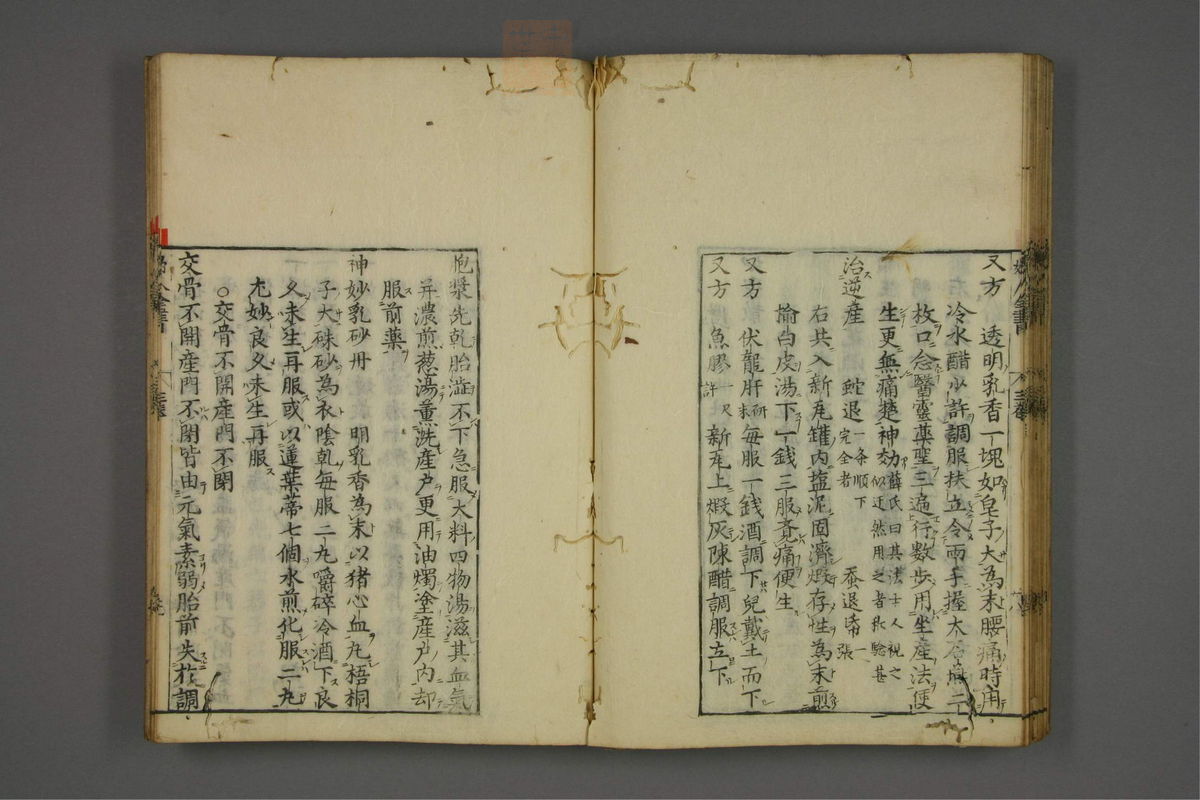 又方　透明乳香一塊如皂子大為末腰痛時用
冷水醋少許調服扶立令兩手握大石燕二
枚口念醫靈藥聖三遍行数步用坐産法便
生更無痛楚神効薛氏曰其法士人視之似迂然用之者秋驗甚
治逆産　蛇退一条順下完全者　蚕退帋一張
右共入新瓦罐内塩泥固濟煅存性為末煎
榆白皮湯下一錢三服覺痛便生
又方　伏龍肝研末每服一錢酒調下兒戴土而下
又方　魚膠一尺許新瓦上煅灰陳醋調服立下
胞漿先乾胎澁不下急服大料四物湯滋其血氣
并濃煎葱湯薫洗産户更用油燭塗産户内却
服前藥
神妙乳砂丹　明乳香為末以猪心血丸梧桐
子大硃砂為衣陰乾每服一丸嚼碎冷酒下良
久未生再服或以蓮葉蒂七個水煎化服二丸
尤妙良久未生再服
○交骨不開産門不閉
交骨不開産門不閉皆由元氣素弱胎前失於調